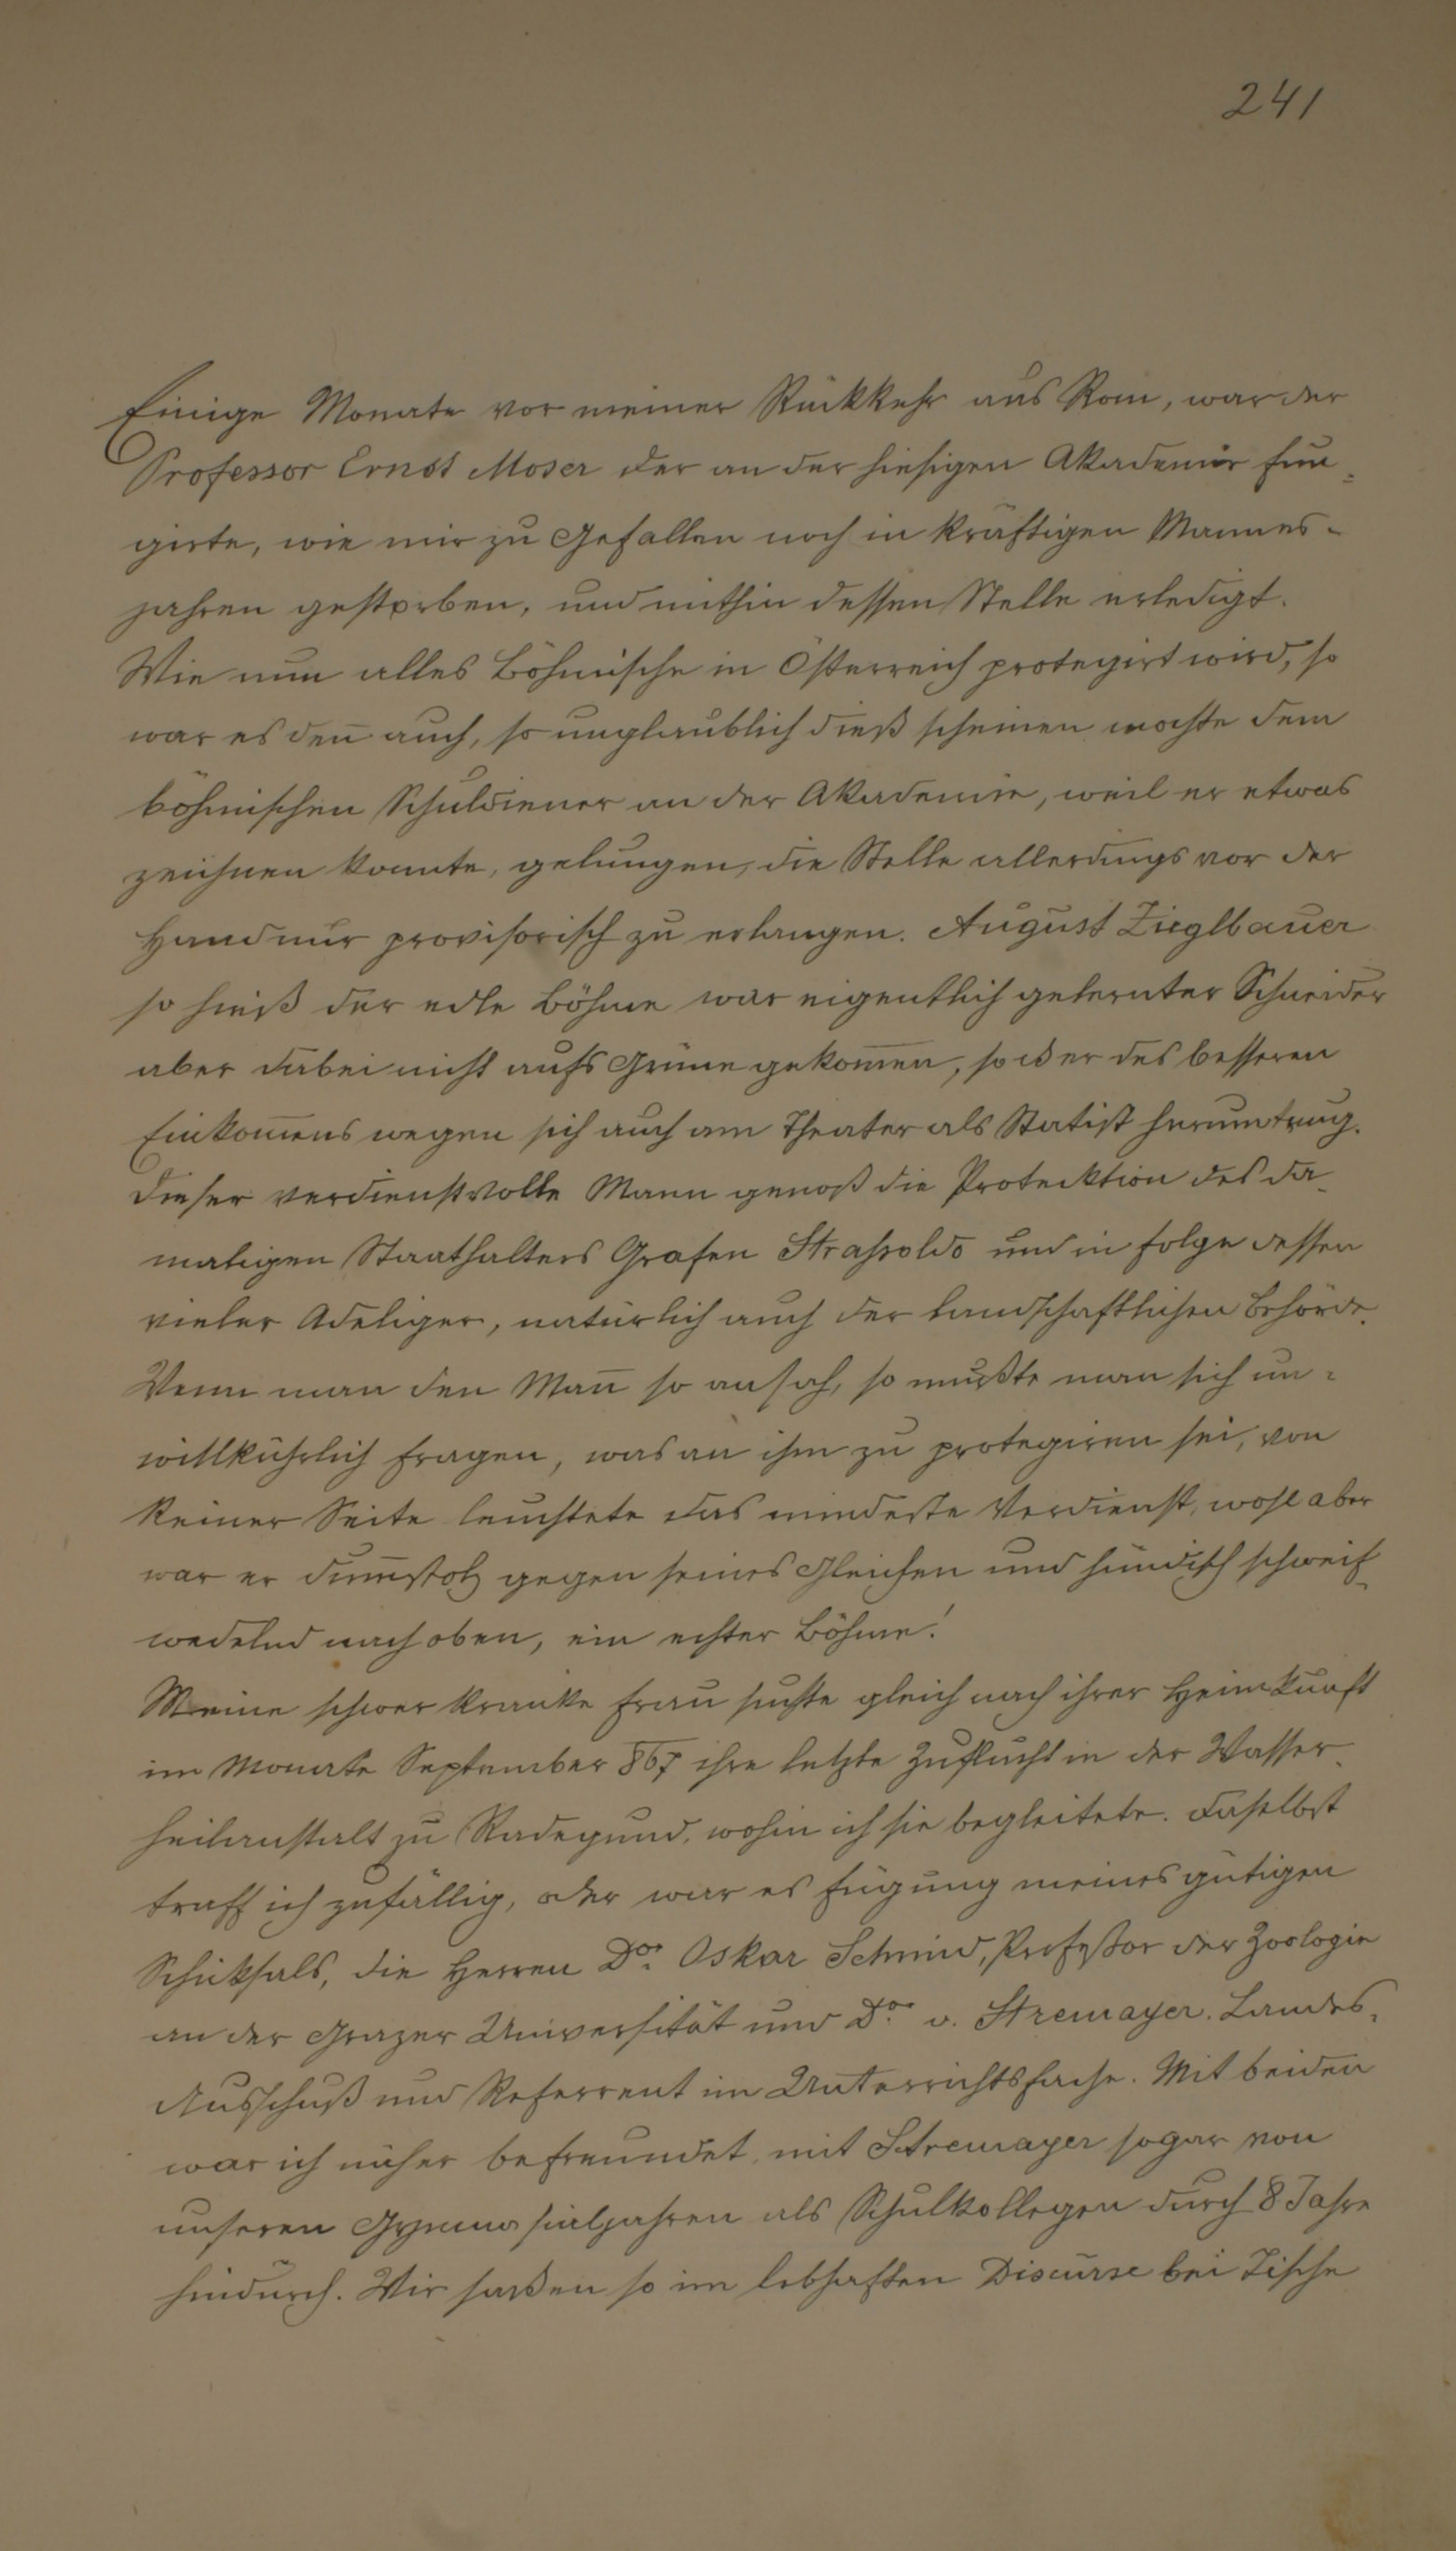 241
Einige Monate vor meiner Rückkehr aus Rom, war der
Professor Ernst Moser der an der hiesigen Akademie fun=
girte, wie mir zu Gefallen noch in kräftigen Mannes-
jahren gestorben, und mithin dessen Stelle erledigt.
Wie nun alles Böhmische in Österreich protegirt wird, so
war es den̄ auch, so unglaublich dieß scheinen mochte dem
böhmischen Schuldiener an der Akademie, weil er etwas
zeichnen konnte, gelungen, die Stelle allerdings vor der
Hand nur provisorisch zu erlangen. August Zieglbauer
so hieß der edle Böhme war eigentlich gelernter Schneider
aber dabei nicht aufs Grüne gekom̄en, so daß er des besseren
Einkom̄ens wegen sich auch am Theater als Statist herumtrug.
Dieser verdienstvolle Mann genoß die Protecktion des da-
maligen Staathalters Grafen Straßoldo und in folge dessen
vieler Adeliger, natürlich auch der landschaftlichen Behörde.
Wenn man den Man̄ so ansah, so mußte man sich un=
willkührlich fragen, was an ihm zu protegiren sei, von
keiner Seite leuchtete das mindeste Verdienst, wohl aber
war er dum̄stolz gegen seines Gleichen und hündisch schweif-
wedelnd nach oben, ein echter Böhme!
Meine schwer kranke Frau suchte gleich nach ihrer Heimkunft
im Monate September 867 ihre letzte Zuflucht in der Wasser-
heilanstalt zu Radegund, wohin ich sie begleitete. Daselbst
traff ich zufällig, oder war es Fügung meines gütigen
Schicksals, die Herren Dor. Oskar Schmid, Profeßor der Zoologie
an der Grazer Universität und Dor. v. Stremayer. Landes-
Ausschuß und Referrent im Unterrichtsfache. Mit beiden
war ich näher befreundet, mit Stremayer sogar von
unseren Gymnasialjahren als Schulkollegen durch 8 Jahre
hindurch. Wir saßen so im lebhaften Discurse bei Tische